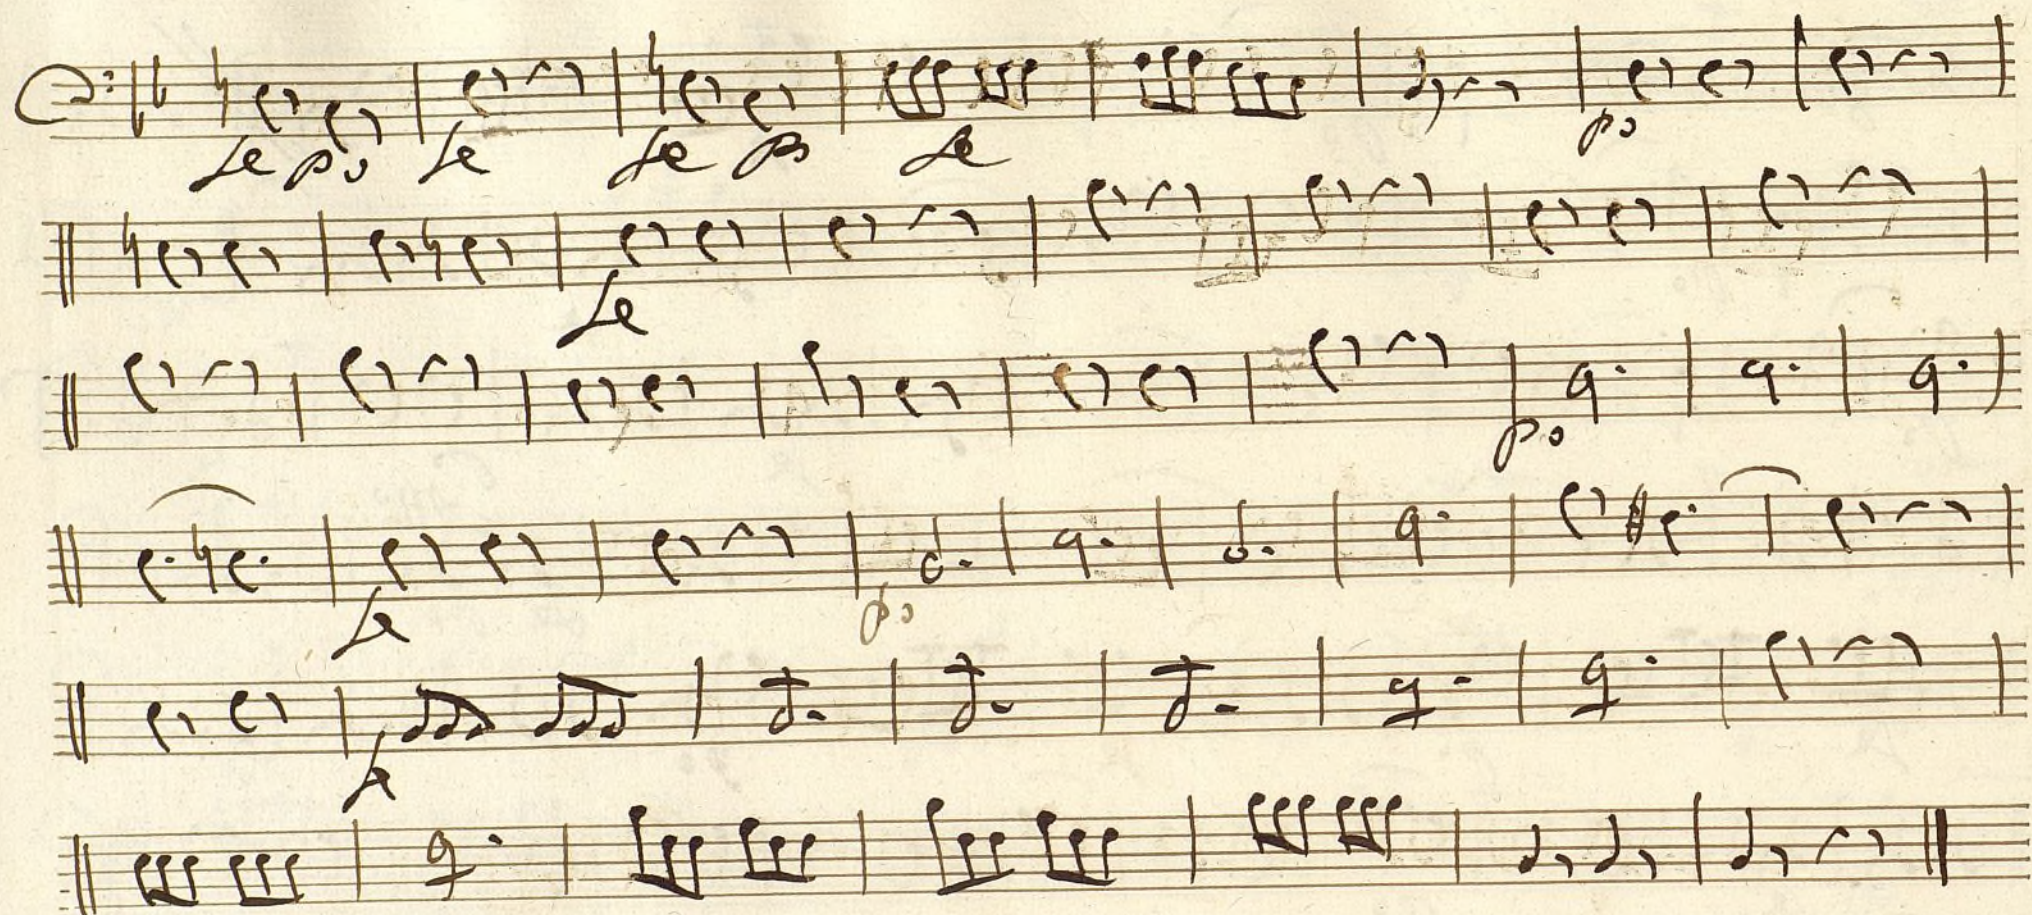 fe po fe fe po fe po
fe
po
fe po
f